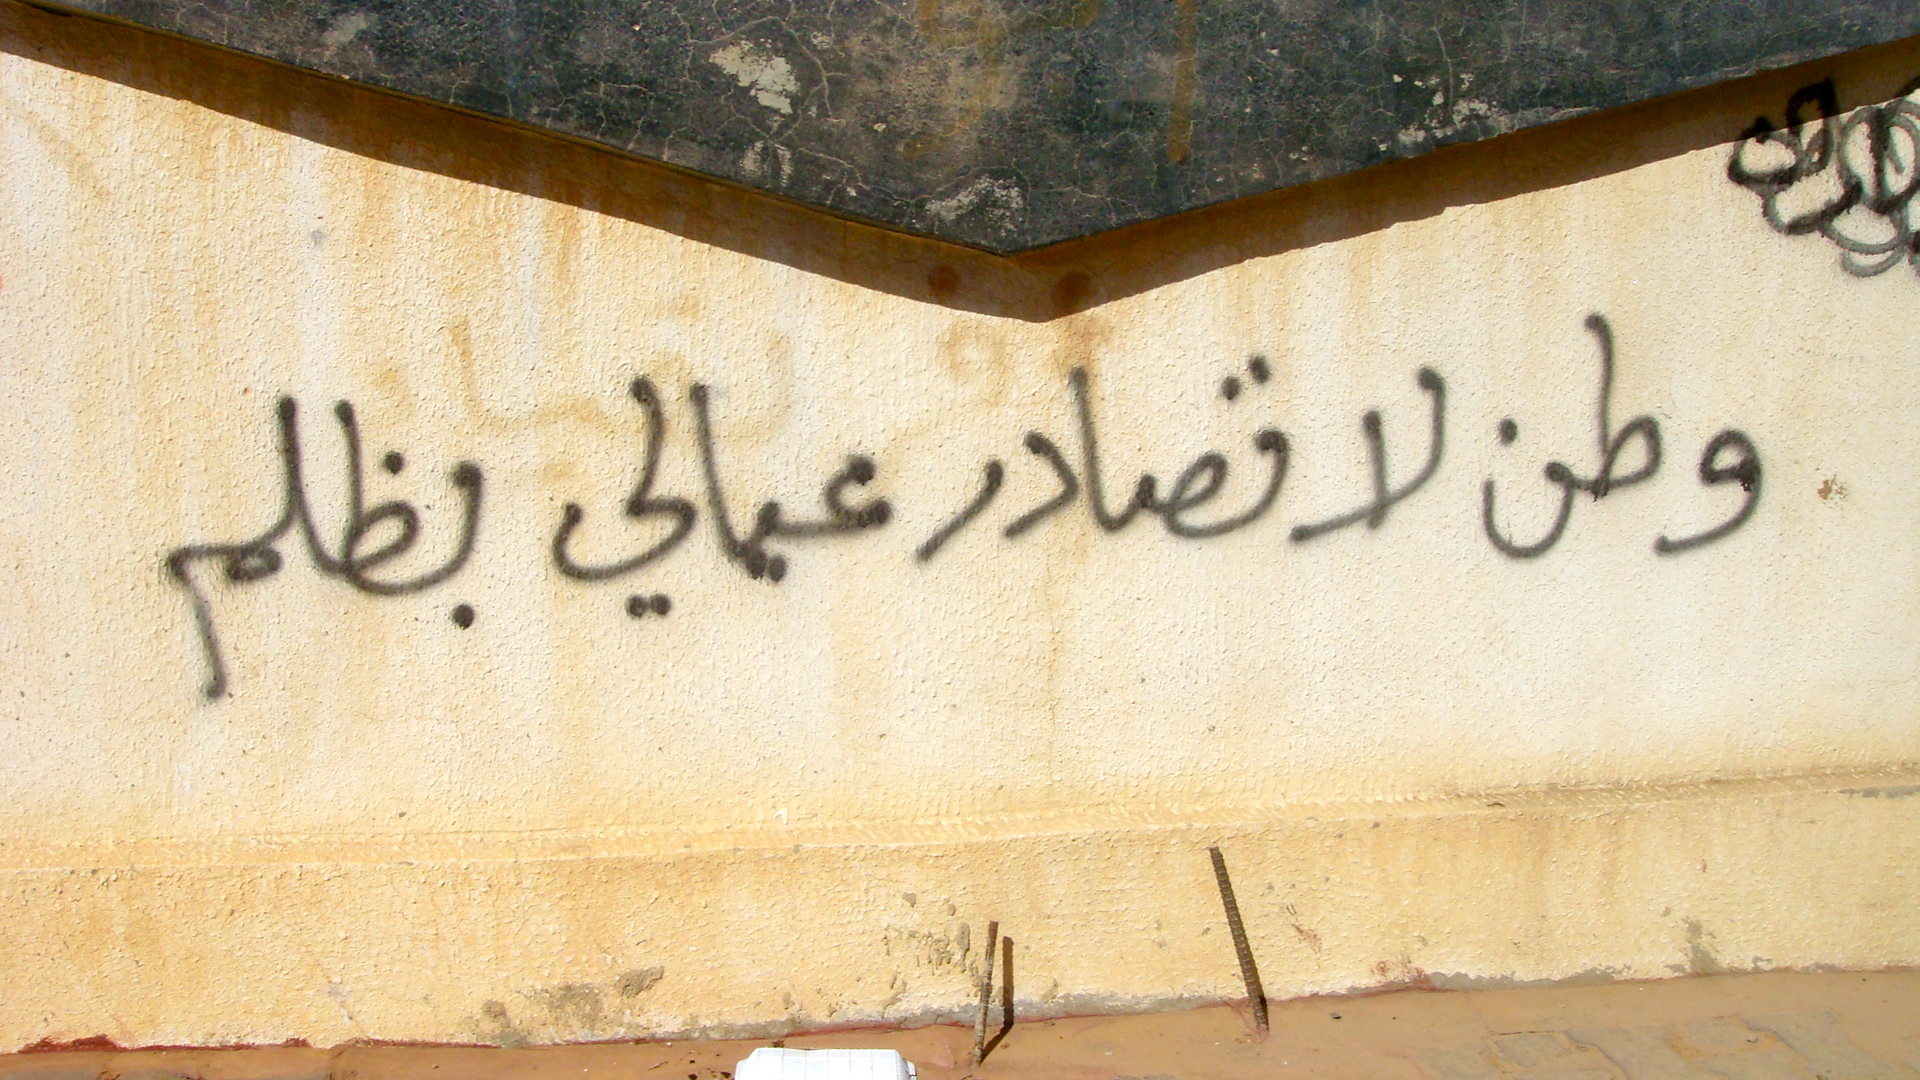 وطن لا تصادر عيالي بظلم